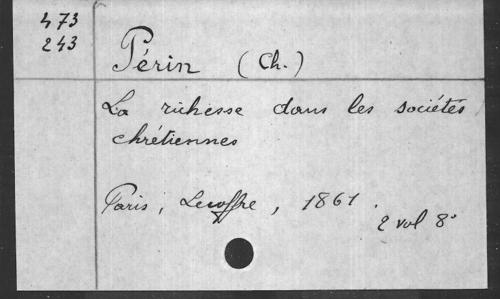 473
243
Périn (Ch.)
La richesse dans les sociétés
chrétiennes
Paris, Lecoffre, 1861.
2 vol 8°